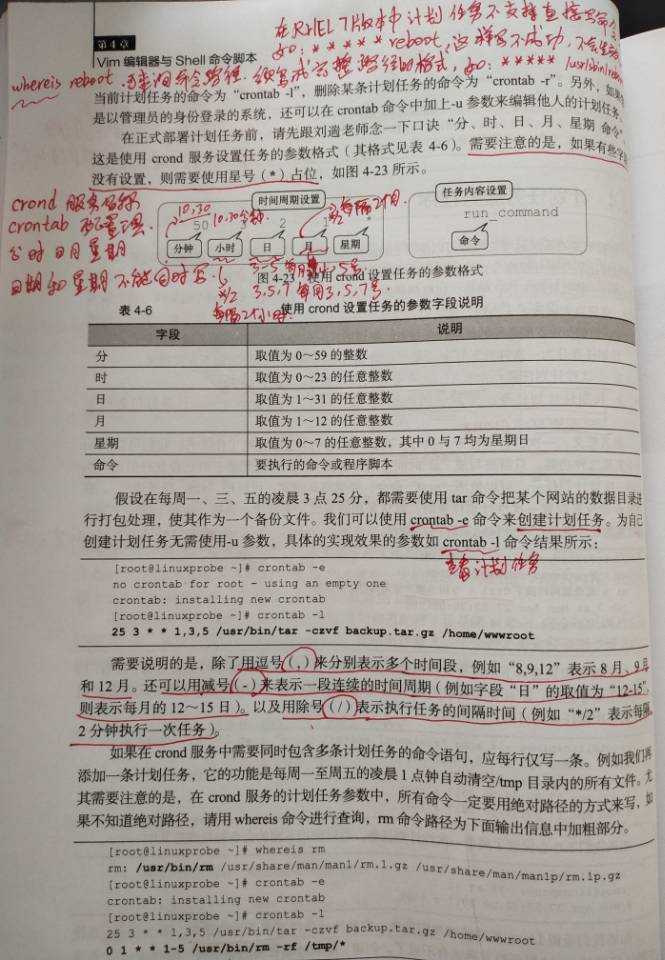 在RHEL 7版本中计划任务不支持直接写命令
如: * * * * * reboot,这样写不成功,不会生效
第4章
Vim 编辑器与 Shell 命令脚本
whereis reboot 可查询命令路径 须写成完整路径的格式, 如: * * * * * /usr/bin/reboot
当前计划任务的命令为“crontab -l”,删除某条计划任务的命令为“crontab -r”。另外,如果
是以管理员的身份登录的系统,还可以在 crontab 命令中加上-u 参数来编辑他人的计划任务
在正式部署计划任务前,请先跟刘遄老师念一下口诀“分、时、日、月、星期 命令”
这是使用 crond 服务设置任务的参数格式(其格式见表 4-6)。需要注意的是,如果有些字
没有设置,则需要使用星号(*)占位,如图 4-23 所示。
crond 服务名称
crontab 配置工具
分 时 日 月 星期
日期和星期不能同时写
时间周期设置
任务内容设置
10,30
10,30分钟
每隔2个月
50 3 2 1 *
run_command
分钟 小时 日 月 星期
命令
3-5 每月3,4,5号
图 4-23 使用 crond 设置任务的参数格式
*/2 3,5,7 每月3,5,7号
每隔2个小时
表 4-6 使用 crond 设置任务的参数字段说明
字段 说明
分 取值为 0~59 的整数
时 取值为 0~23 的任意整数
日 取值为 1~31 的任意整数
月 取值为 1~12 的任意整数
星期 取值为 0~7 的任意整数,其中 0 与 7 均为星期日
命令 要执行的命令或程序脚本
假设在每周一、三、五的凌晨 3 点 25 分,都需要使用 tar 命令把某个网站的数据目录进
行打包处理,使其作为一个备份文件。我们可以使用 crontab -e 命令来创建计划任务。为自己
创建计划任务无需使用-u 参数,具体的实现效果的参数如 crontab -l 命令结果所示:
查看计划任务
[root@linuxprobe ~]# crontab -e
no crontab for root - using an empty one
crontab: installing new crontab
[root@linuxprobe ~]# crontab -l
25 3 * * 1,3,5 /usr/bin/tar -czvf backup.tar.gz /home/wwwroot
需要说明的是,除了用逗号(,)来分别表示多个时间段,例如“8,9,12”表示 8 月、9 月
和 12 月。还可以用减号(-)来表示一段连续的时间周期(例如字段“日”的取值为“12-15”,
则表示每月的 12~15 日)。以及用除号(/)表示执行任务的间隔时间(例如“*/2”表示每隔
2 分钟执行一次任务)。
如果在 crond 服务中需要同时包含多条计划任务的命令语句,应每行仅写一条。例如我们再
添加一条计划任务,它的功能是每周一至周五的凌晨 1 点钟自动清空/tmp 目录内的所有文件。尤
其需要注意的是,在 crond 服务的计划任务参数中,所有命令一定要用绝对路径的方式来写,如
果不知道绝对路径,请用 whereis 命令进行查询,rm 命令路径为下面输出信息中加粗部分。
[root@linuxprobe ~]# whereis rm
rm: /usr/bin/rm /usr/share/man/man1/rm.1.gz /usr/share/man/man1p/rm.1p.gz
[root@linuxprobe ~]# crontab -e
crontab: installing new crontab
[root@linuxprobe ~]# crontab -l
25 3 * * 1,3,5 /usr/bin/tar -czvf backup.tar.gz /home/wwwroot
0 1 * * 1-5 /usr/bin/rm -rf /tmp/*